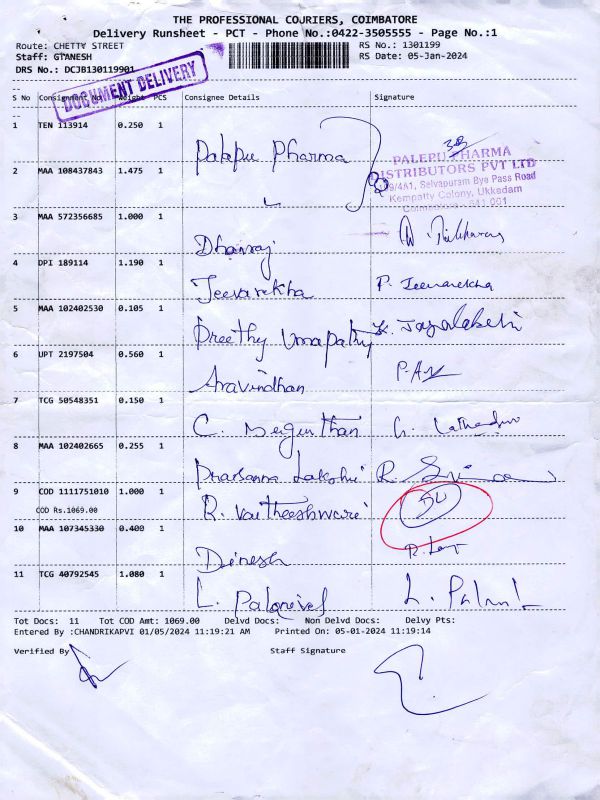 THE PROFESSIONAL COURIERS, COIMBATORE
Delivery Runsheet - PCT - Phone No.:0422-3505555 - Page No.:1
Route: CHETTY STREET
Staff: GANESH
DRS No.: DCJB130119901
RS No.: 1301199
RS Date: 05-Jan-2024
DOCUMENT DELIVERY
S No Consignment No Weight PCS Consignee Details Signature
1 TEN 113914 0.250 1 Palepu Pharma
PALEPU PHARMA
DISTRIBUTORS PVT LTD
Selvapuram Bye Pass Road
Kempatty Colony, Ukkadam
2 MAA 108437843 1.475 1
3 MAA 572356685 1.000 1 Dhanraj
4 DPI 189114 1.190 1 Jeevarekha P. Jeevarekha
5 MAA 102402530 0.105 1 Preethy Umapathy
6 UPT 2197504 0.560 1 Aravindhan
7 TCG 50548351 0.150 1 C.
8 MAA 102402665 0.255 1 Prarsanna Lakshmi R.
9 COD 1111751010 1.000 1 R. Vaitheeshwari
COD Rs.1069.00
10 MAA 107345330 0.400 1 Dinesh
11 TCG 40792545 1.080 1 L. L.
Tot Docs: 11 Tot COD Amt: 1069.00 Delvd Docs: Non Delvd Docs: Delvy Pts:
Entered By :CHANDRIKAPVI 01/05/2024 11:19:21 AM Printed On: 05-01-2024 11:19:14
Verified By Staff Signature